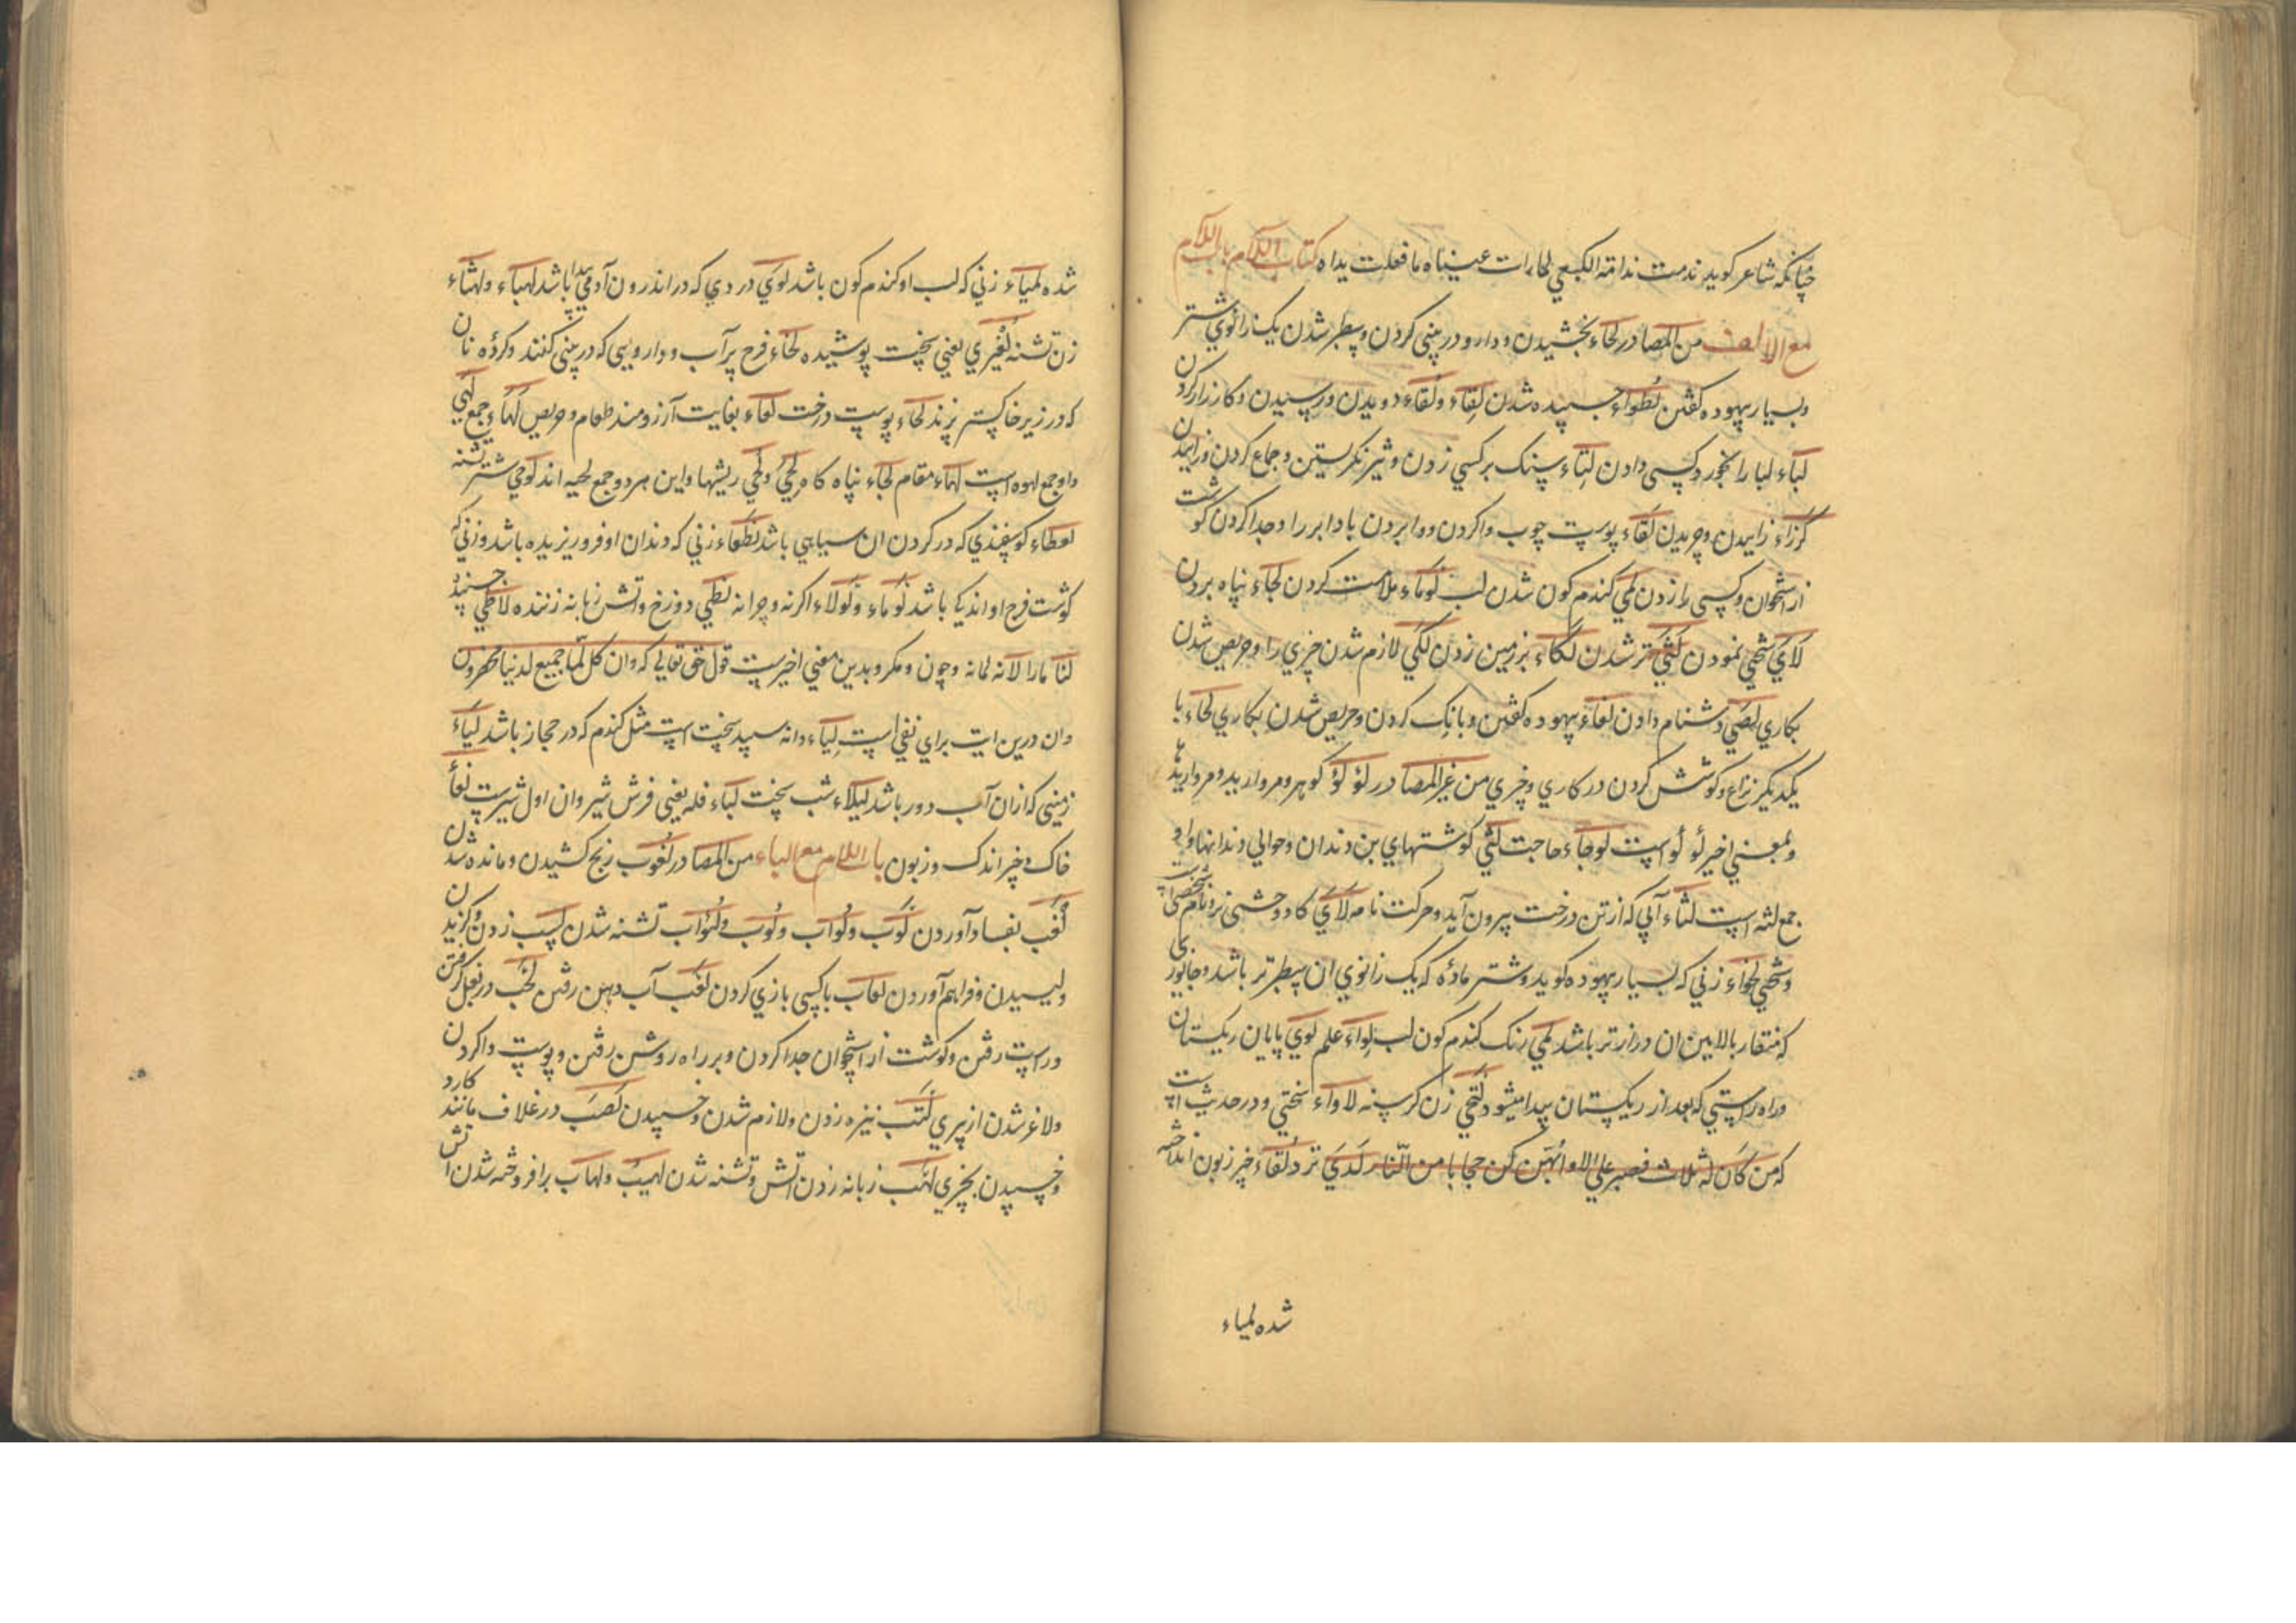 چنانکه شاعر کوید ندمت ندامة الکسعي لما رات عیناه ما فعلت یداه کتاب اللام باب اللام
مع الالف من المصادر لخاء بخشیدن و دارو در بیني کردن و سطبر شدن یک زانوي شتر
و بسیار بیهوده کفتن لطواء چسپیده شدن لقاء و لقاء دویدن و رسیدن و کارزار کردن
لباء لبا را بخورد کسی دادن لتاء سنک بر کسي زدن و تیز نکریستن و جماع کردن و زاییدن
لزاء زاییدن و چریدن لقاء پوست چوب واکردن و وابردن باد ابر را و جدا کردن کوشت
از استخوان و کسی را زدن لمي کندم کون شدن لب لوماء ملامت کردن لجاء پناه بردن
لاي سختي نمودن لثي تر شدن لکاء بر زمین زدن لکي لازم شدن چیزي را و حریص شدن
بکاري لصي دشنام دادن لغاء بیهوده کفتن و بانک کردن و حریص شدن بکاري لحاء با
یکدیکر نزاع و کوشش کردن در کاري و چیزي من غیر المصادر لؤلؤ کوهر و مروارید و مرواریدها
و بمعني اخیر لؤلؤ است لوجاء حاجت لثي کوشتهاي بن دندان و حوالي دندانها و او
جمع لثه است لثاء آبي که از تن درخت بیرون آید و حرکت نامه لاي کاو وحشی نر و نام شخصی است
و سختي لخواء زني که بسیار بیهوده کوید و شتر ماده که یک زانوي ان سطبرتر باشد و جانوری
که منقار بالایین ان درازتر باشد لمي رنک کندم کون لب لواء علم لوي پایان ریکستان
و راه راستي که بعد از ریکستان پیدا میشود لقي زن کرسنه لاواء سختي و در حدیث است
که من کان له ثلاث فصبر علي لاوائهن کن حجابا من النار لدي نزد لقاء چیز زبون انداخته
شده لمیاء
شده لمیاء زني که لب او کندم کون باشد لوي دردي که در اندرون آدمي پیدا باشد لهباء و لهثاء
زن تشنه لغیزي یعني سخت پوشیده لخاء فرج پر آب و دارویي که در بیني کنند و کرده نان
که در زیر خاکستر پزند لحاء پوست درخت لعاء بغایت آرزومند طعام و حریص لهاء و جمع لهي
و او جمع لهوه است لهاء مقام لجاء پناه کاه لحي و لحي ریشها و این هر دو جمع لحیه اند لوحي شتر تشنه
لعطاء کوسفندي که در کردن ان سیاهي باشد لطعاء زني که دندان او فرو ریزیده باشد و زني که
کوشت فرج او اندک باشد لوماء و لولاء اکر نه و چرا نه لظي دوزخ و اتش زبانه زننده لاطي چسبنده
لنا ما را لا نه لما نه و چون و مکر و بدین معني اخیر است قول حق تعالي که و ان کل لما جمیع لدینا محضرون
و ان درین ایت براي نفي است لیاء دانه سپید سخت است مثل کندم که در حجاز باشد لیاء
زمیني که از ان آب دور باشد لیلاء شب سخت لباء فله یعني فرش شیر و ان اول شیر است لفأ
خاک و چیز اندک و زبون باب اللام مع الباء من المصادر لغوب رنج کشیدن و مانده شدن
لغب بفساد آوردن لوب و لواب و لوب و لؤاب تشنه شدن لسب زدن و کزیدن
و لیسیدن و فراهم آوردن لعاب با کسی بازي کردن لعب آب دهن رفتن لخب در بغل کرفتن
و راست رفتن و کوشت از استخوان جدا کردن و بر راه روشن رفتن و پوست واکردن
و لاغر شدن از پیري لتب نیزه زدن و لازم شدن و چسپیدن لصب در غلاف ماندن کارد
و چسپیدن بچیزي لهب زبانه زدن اتش و تشنه شدن لهیب و لهاب برافروخته شدن اتش